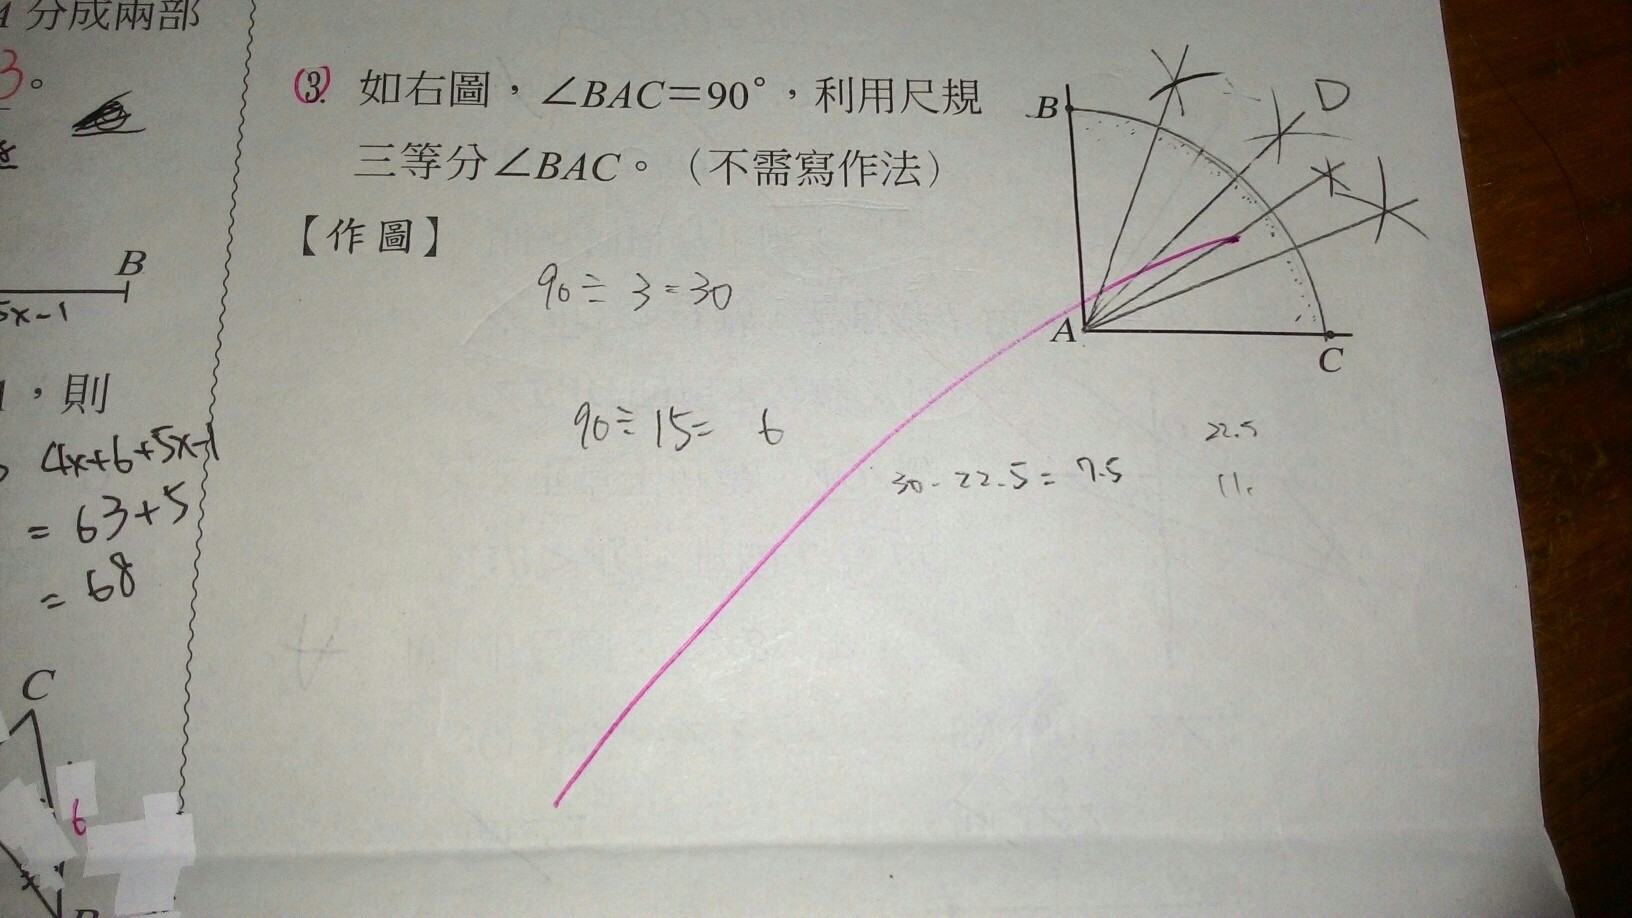 分成兩部
3。
B
5x-1
，則
4x+6+5x-1
= 63+5
= 68
C
6
(3) 如右圖，∠BAC＝90°，利用尺規
三等分∠BAC。（不需寫作法）
【作圖】
90÷3=30
90÷15= 6
30-22.5=7.5
22.5
11.
B
D
A
C